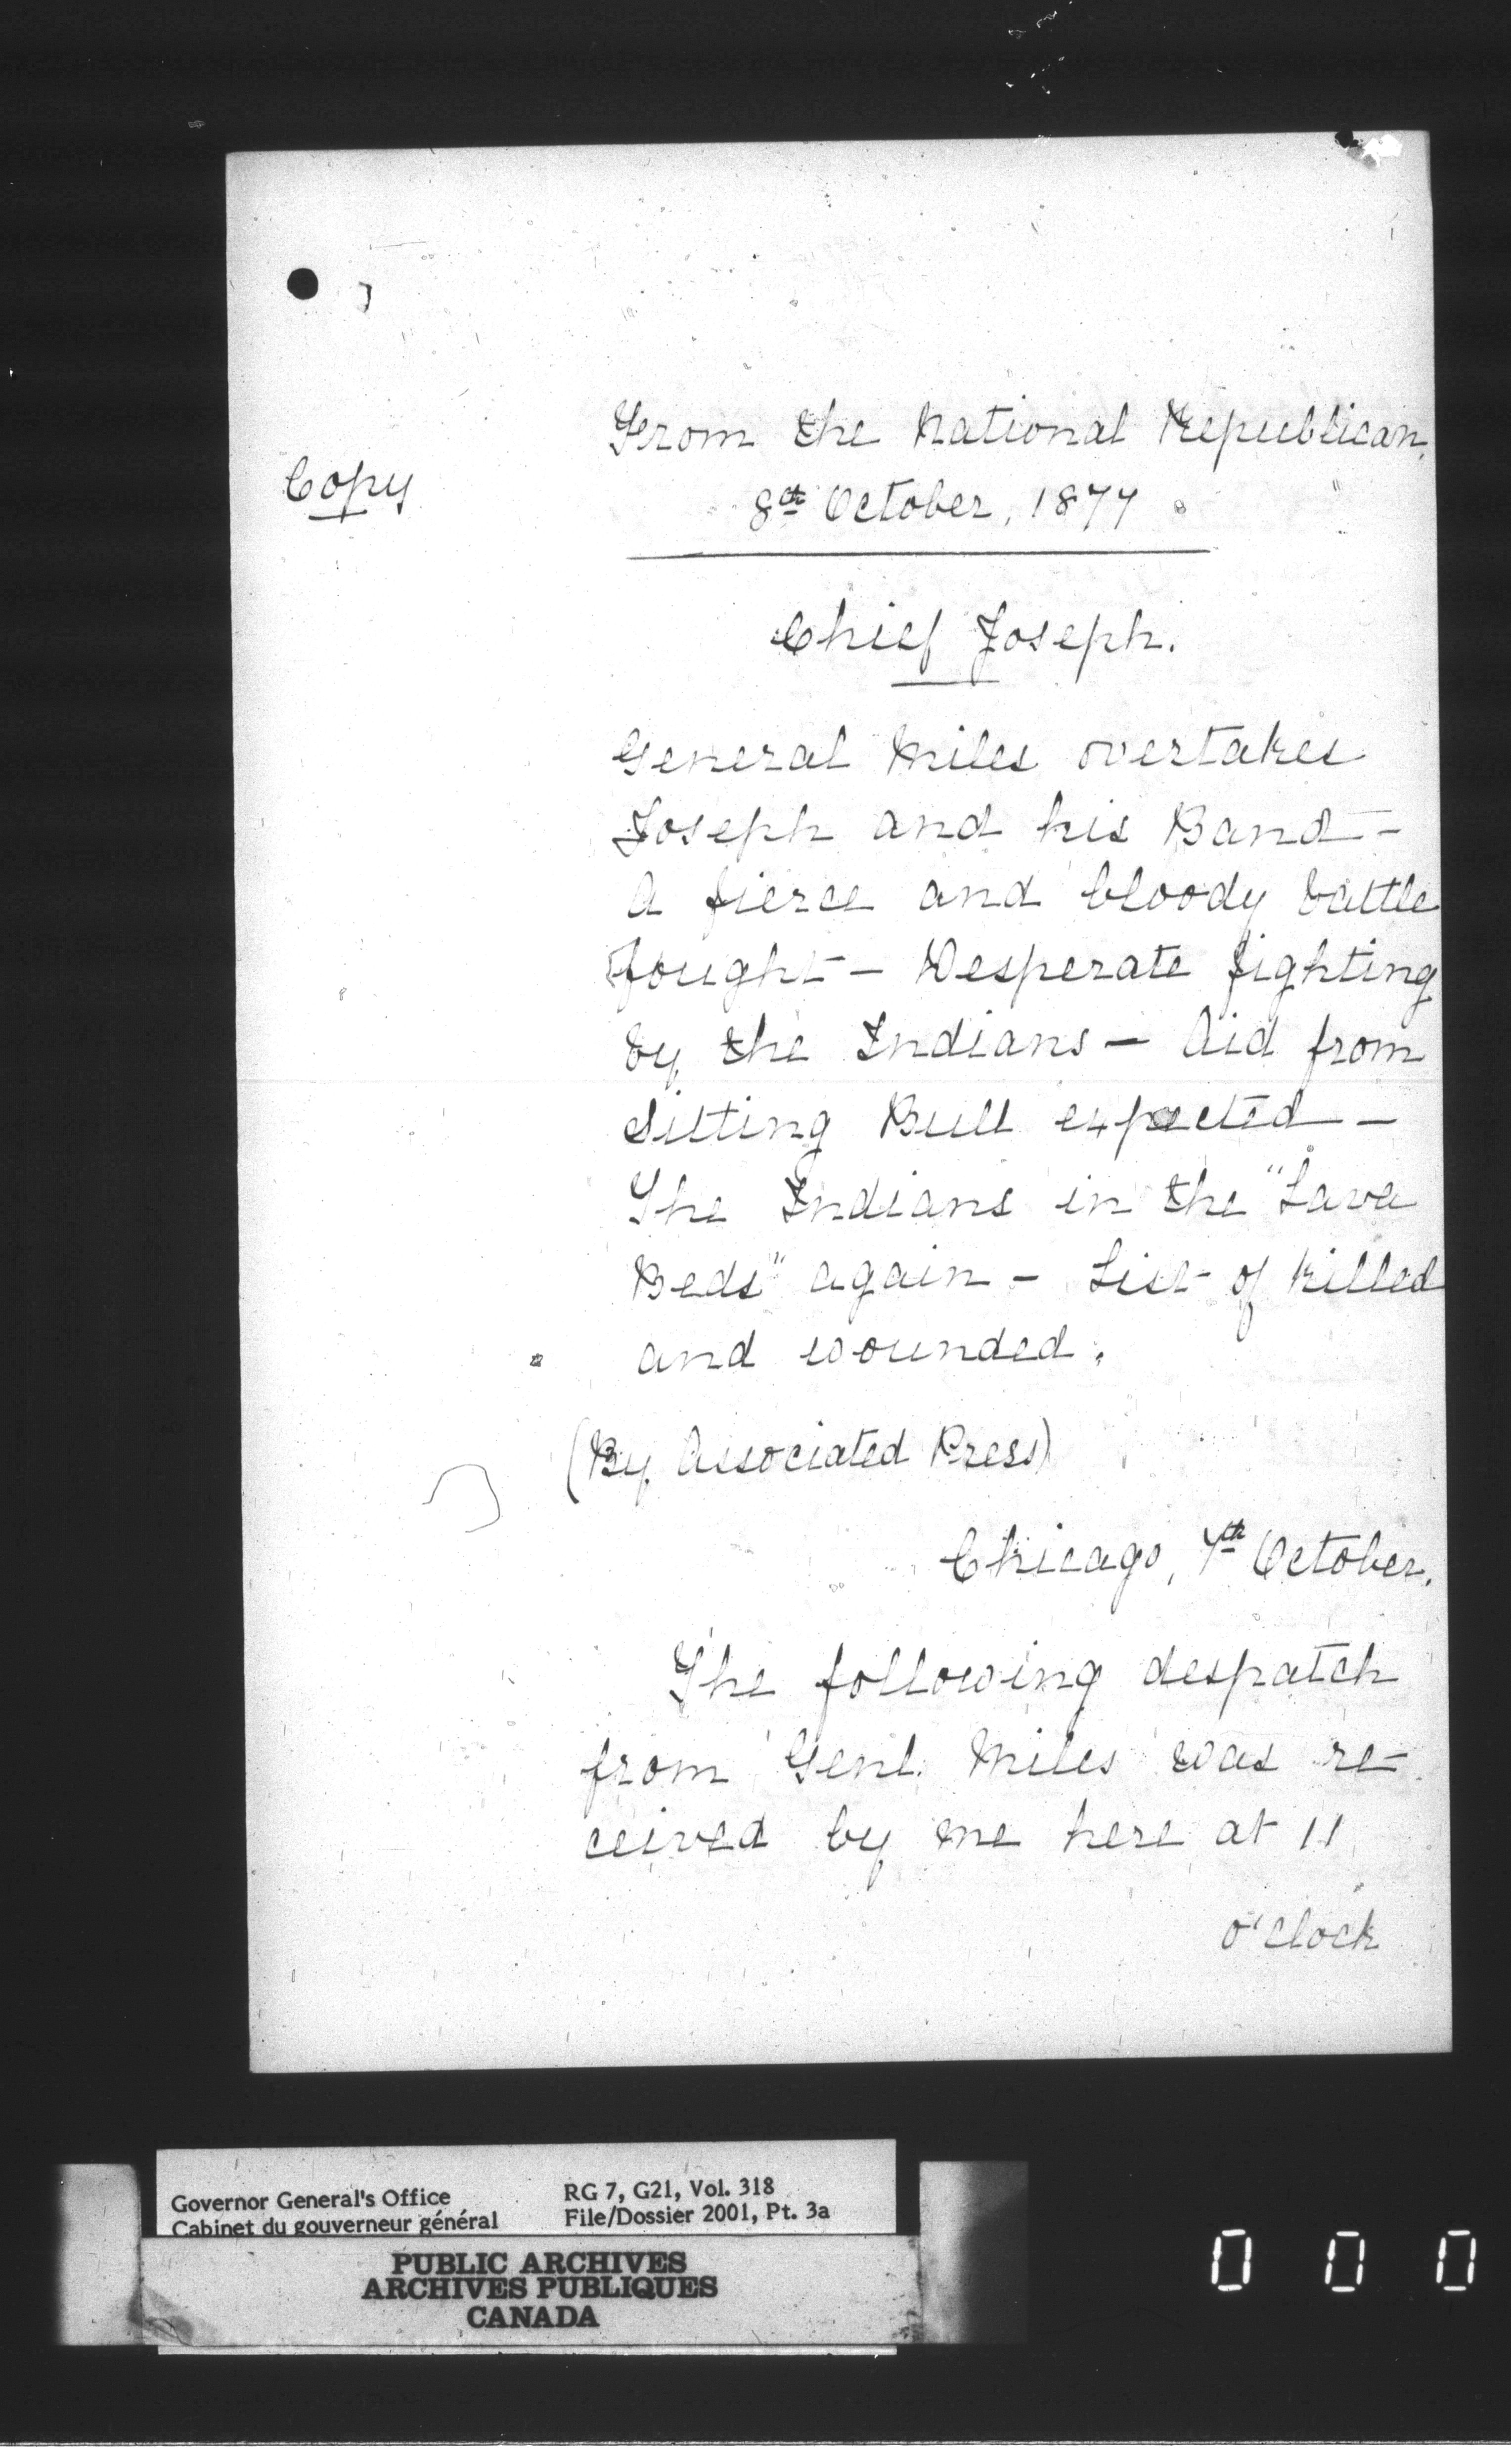 From the National Republican,
Copy
8th October, 1877
Chief Joseph.
General Miles overtakes
Joseph and his Band -
A fierce and bloody battle
fought - Desperate fighting
by the Indians - Aid from
Sitting Bull expected -
The Indians in the "Lava
Beds" again - List of killed
and wounded.
(By Associated Press)
Chicago, 7th October.
The following despatch
from Genl. Miles was re-
ceived by me here at 11
o'clock
Governor General's Office
Cabinet du gouverneur général
RG 7, G21, Vol. 318
File/Dossier 2001, Pt. 3a
PUBLIC ARCHIVES
ARCHIVES PUBLIQUES
CANADA
0 0 0